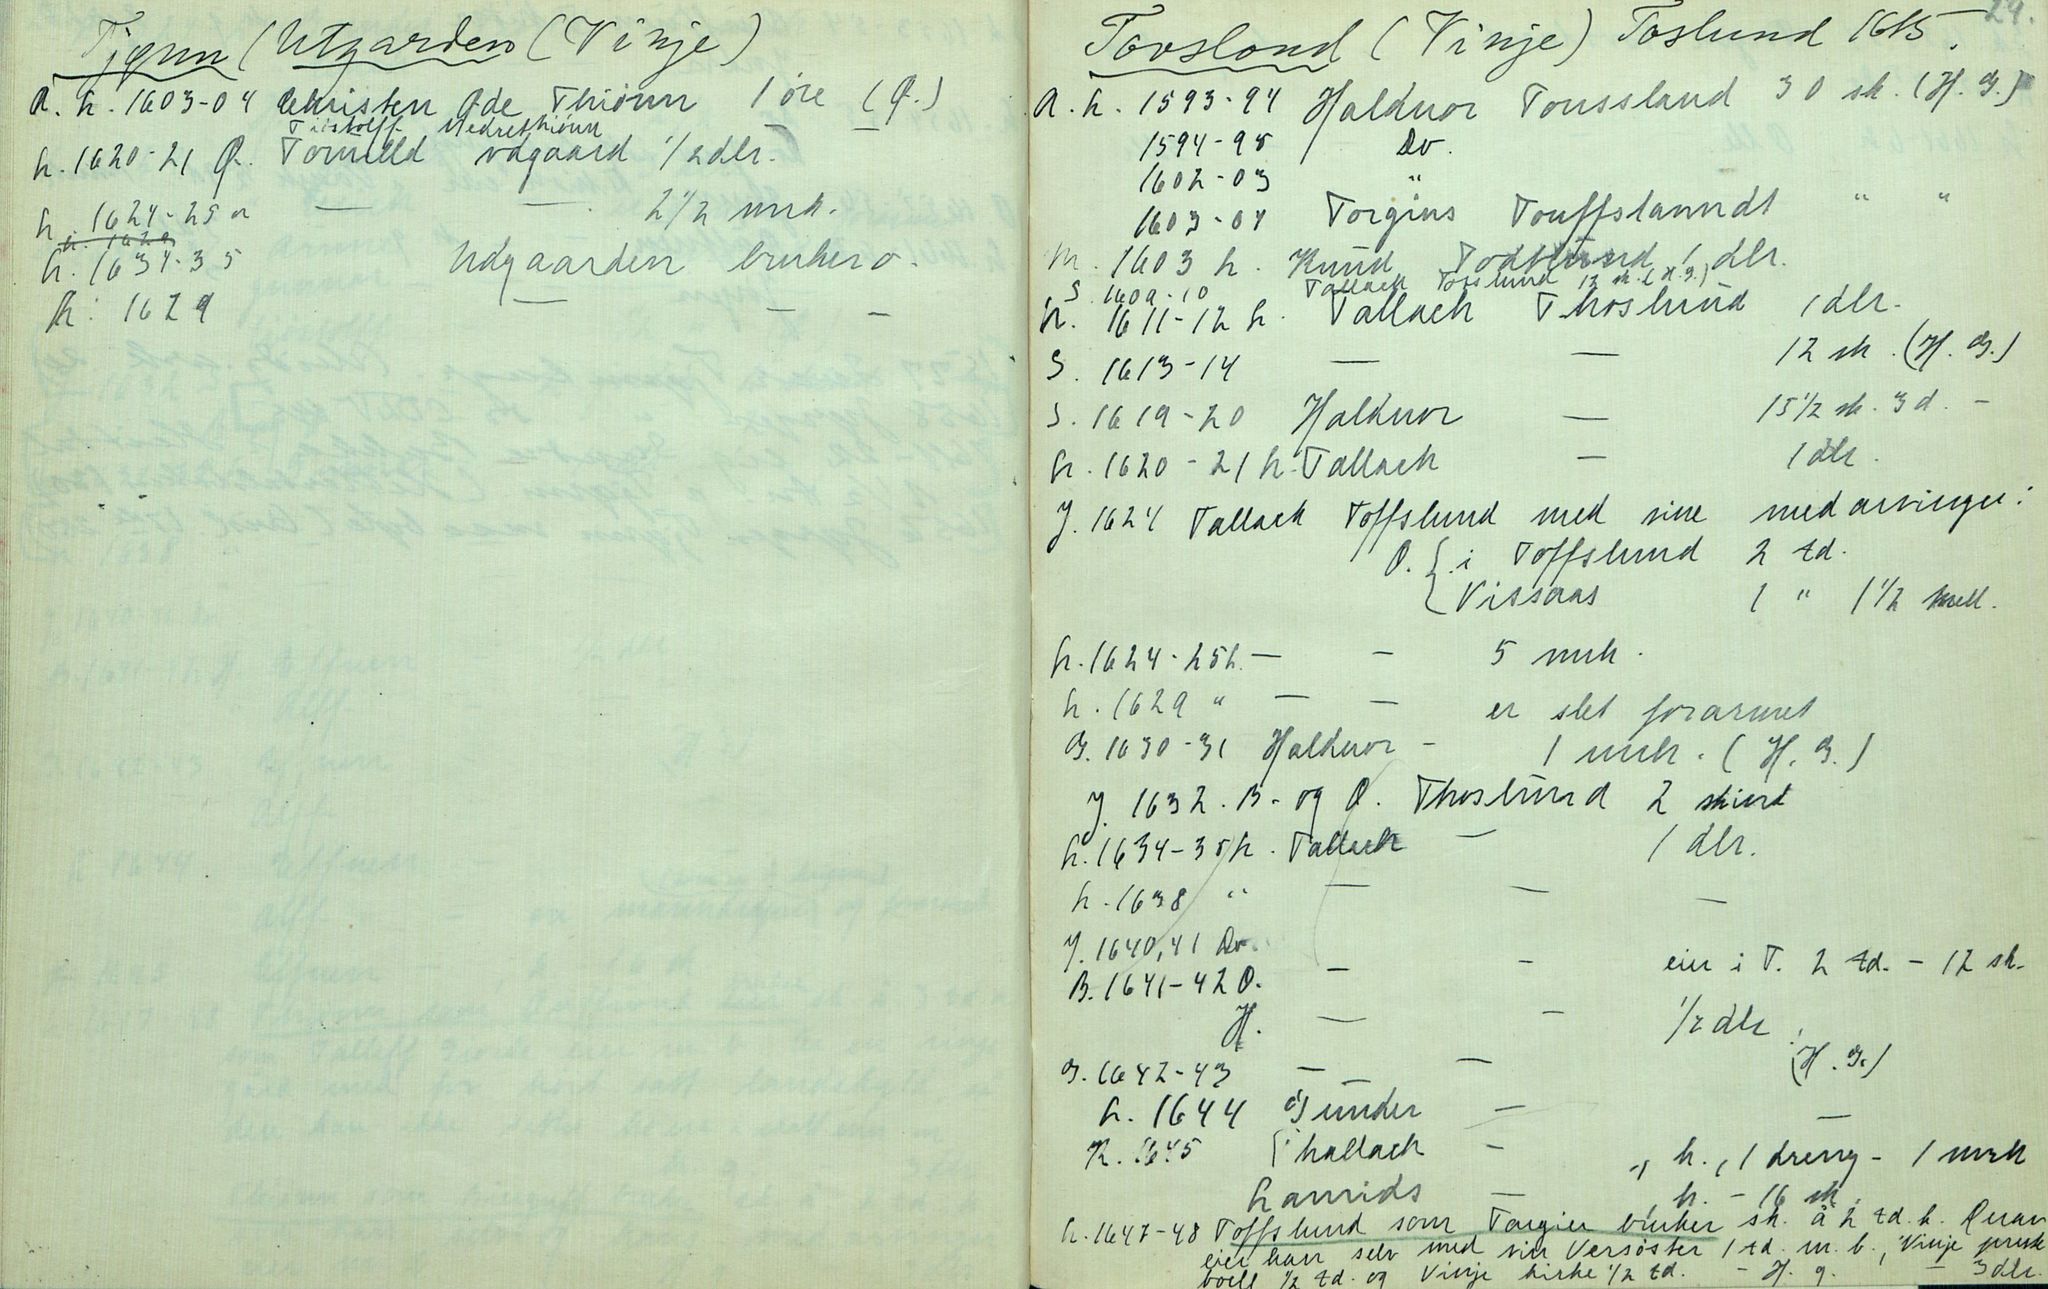 Tjønn (Utgarden (Vinje)
A. h. 1603-04 Christen Ode Thiønn 1 øre (Ø.)
Nedrethiønn
h. 1620-21 Ø. vdgaard 1/2 dlr.
h. 1624-25 — — 2 1/2 mrk.
h. 1629
h. 1634-35 Udgaarden bruker o.
h. 1629 — — —
24.
Tovslond (Vinje) Toslund 1615.
A. h. 1593-94 Halduor Toussland 30 sk. (H. G.)
1594-95 Do.
1602-03 "
1603-04 Torgius Touffslanndt " "
M. 1603 h. Knud 1 dlr.
S. 1609-10 Tallach Toslund 12 sk. (H. G.)
h. 1611-12 h. Tallach Thoslund 1 dlr.
S. 1613-14 — — 12 sk. (H. G.)
S. 1619-20 Halduor — 15 1/2 sk. 3 d. -
h. 1620-21 h. Tallach — 1 dlr.
J. 1624 Tallack Toffslund med sine medarvinger:
O. { i Toffslund 2 td.
Vissaas 1 " 1 1/2 skell.
h. 1624-25 h. — — 5 mrk.
h. 1629 " — — er slet forarmet
G. 1630-31 Halduor - 1 mrk. (H. G.)
J. 1632. B. og O. Thoslund 2 skind
h. 1634-35 h. Tallack — 1 dlr.
h. 1638 " — — —
J. 1640, 41 Do.
B. 1641-42 O. — - eier i T. 2 td. - 12 sk.
H. — - 1/2 dlr.
G. 1642-43 — — — (H. G.)
h. 1644 Gunder — —
K. 1645 { Thallack - " h., 1 dreng - 1 mrk
— h. - 16 sk.
h. 1647-48 Toffslund som Torgier bruker sk. å 2 td. h. Derav
eier han selv med sin Versøster 1 td. m. b., Vinje
boell 1/2 td. og Vinje kirke 1/2 td. - H. g. - 3 dlr.